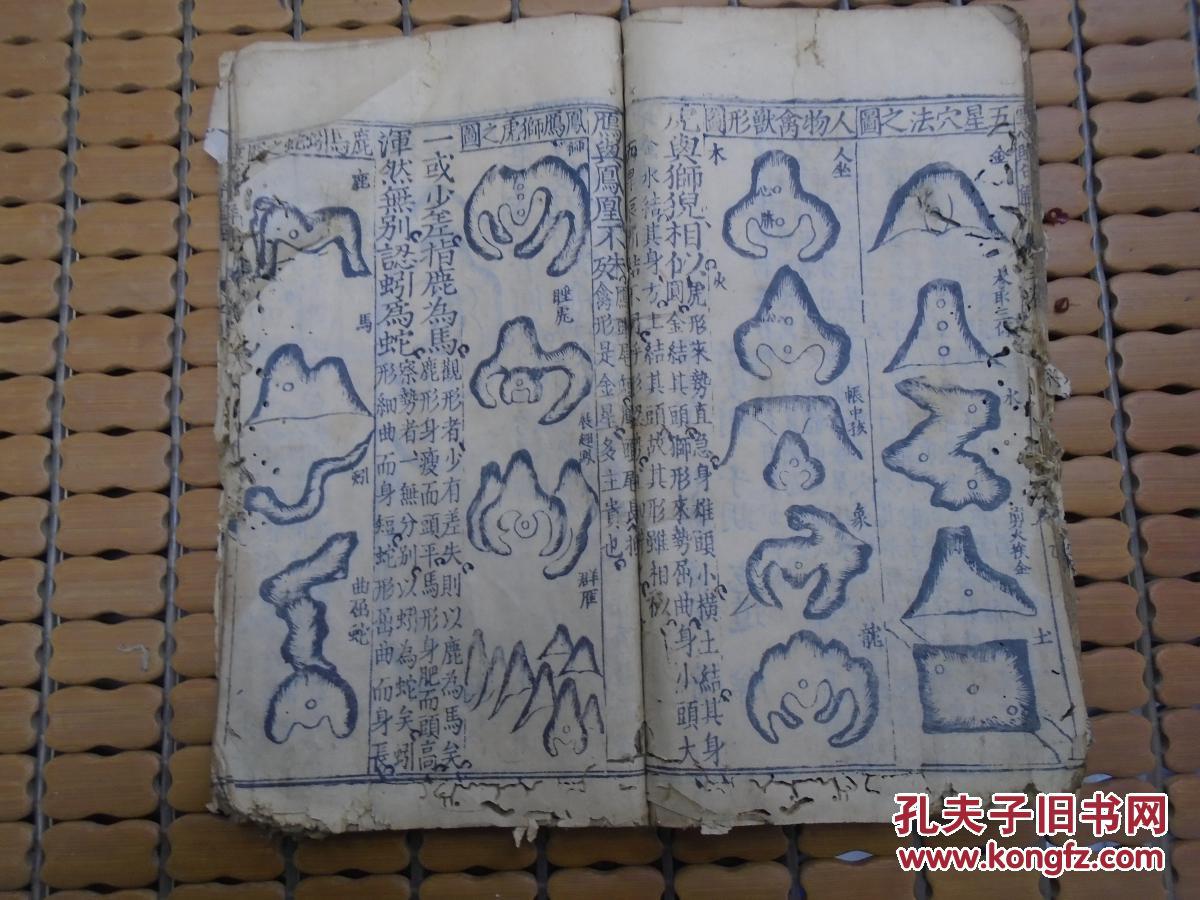 五星穴法之圖
金
水
土
人物禽獸形圖
人坐
木
火
帳中孩
象
龍
虎與獅猊相似
虎形來勢直急身雄頭小橫土結其身
圓金結其頭獅形來勢屈曲身小頭大
金水結其身方土結其頭故其形雖相似
鴈與鳳凰不殊
禽形是金星多主貴也
鳳鴈獅虎之圖
獅
睡虎
展翅鳳
群雁
一或少差指鹿為馬
觀形者少有差失則以鹿為馬矣
鹿形身瘦而頭平馬形身肥而頭高
渾然無別認蚓為蛇
察勢者一無分別以蚓為蛇矣蚓
形細曲而身短蛇形屈曲而身長
鹿馬蚓蛇之圖
鹿
馬
蚓
曲蛇
孔夫子旧书网
www.kongfz.com